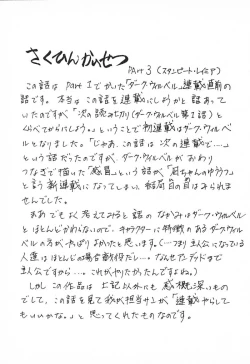 さくひんかいせつ
PArt 3 (スタンピート・レイニア)
この話は PArt 1 でかいた「ダーク・ウィルベル」連載直前の
話です。本当は この話を連載にしようかと話あって
いたのですが「次の読みきり(ダーク・ウィルベル第1話)と
くらべてからにしよう。」ということで初連載はダーク・ウィルベ
ルとなりました。「じゃあ、この話は次の連載に…」
という話だったのですが、ダーク・ウィルベルがおわり
つなぎで描いた「惑星」という話が「
と言う新連載になってしまい、結局日の目はみられま
せんでした。
まあ でもよく考えてみると話のながれはダーク・ウィルベル
とほとんどかわらないので、キャラクターに特徴のあるダーク・ウィル
ベルの方がやっぱりよかったと思います。(一つまり 主人公になっている
人達はほとんどの場合敵役だし…なんせウェディッドまで
主人公ですから…。これがやりたかったんですよね。)
しかし この作品は 上記以外にも 感慨深いもの
でして、この話を見て秋が担当さんが「連載やらして
もいいかな。」と思ってくれたものなのです。